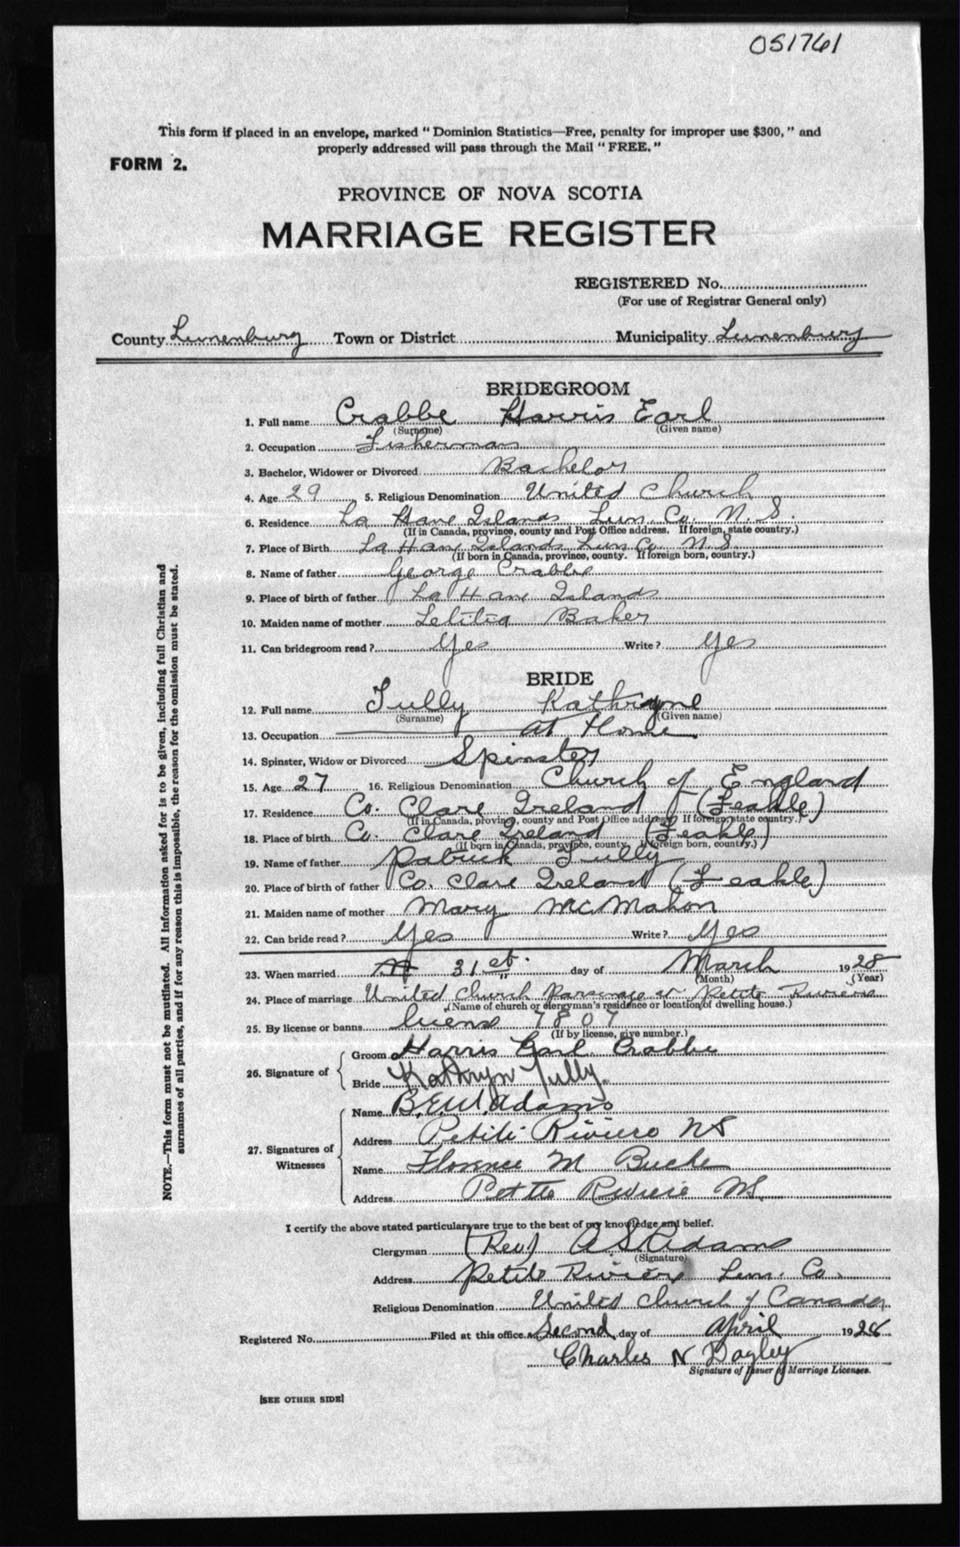 051761
This form if placed in an envelope, marked "Dominion Statistics—Free, penalty for improper use $300," and
properly addressed will pass through the Mail "FREE."
FORM 2.
PROVINCE OF NOVA SCOTIA
MARRIAGE REGISTER
REGISTERED No.
(For use of Registrar General only)
County Lunenburg Town or District Municipality Lunenburg
BRIDEGROOM
1. Full name Crabbe Harris Earl
(Surname) (Given name)
2. Occupation Fisherman
3. Bachelor, Widower or Divorced Bachelor
4. Age 29 5. Religious Denomination United Church
6. Residence La Have Islands Lun. Co. N. S.
(If in Canada, province, county and Post Office address. If foreign, state country.)
7. Place of Birth La Have Islands Lun Co. N. S.
(If born in Canada, province, county. If foreign born, country.)
8. Name of father George Crabbe
9. Place of birth of father La Have Islands
10. Maiden name of mother Letitia Baker
11. Can bridegroom read? Yes Write? Yes
BRIDE
12. Full name Tully Kathryne
(Surname) (Given name)
13. Occupation at Home
14. Spinster, Widow or Divorced Spinster
15. Age 27 16. Religious Denomination Church of England
17. Residence Co. Clare Ireland (Feakle)
(If in Canada, province, county and Post Office address. If foreign, state country.)
18. Place of birth Co. Clare Ireland (Feakle)
(If born in Canada, province, county. If foreign born, country.)
19. Name of father Patrick Tully
20. Place of birth of father Co. Clare Ireland (Feakle)
21. Maiden name of mother Mary McMahon
22. Can bride read? Yes Write? Yes
23. When married 31st day of March 1928
(Month) (Year)
24. Place of marriage United Church Parsonage at Petite Riviere
(Name of church or clergyman's residence or location of dwelling house.)
25. By license or banns license 7807
(If by license, give number.)
26. Signature of
Groom Harris Earl Crabbe
Bride Kathryn Tully.
27. Signatures of Witnesses
Name B.E.W. Adams
Address Petite Riviere NS
Name Florence M
Address Petite Riviere NS.
I certify the above stated particulars are true to the best of my knowledge and belief.
Clergyman (Rev) A S Adams
(Signature)
Address Petite Riviere Lun. Co.
Religious Denomination United Church of Canada
Registered No. Filed at this office Second day of April 1928
Charles N Dagley
Signature of Issuer of Marriage Licenses.
[SEE OTHER SIDE]
NOTE.—This form must not be mutilated. All information asked for is to be given, including full Christian and
surnames of all parties, and if for any reason this is impossible, the reason for the omission must be stated.